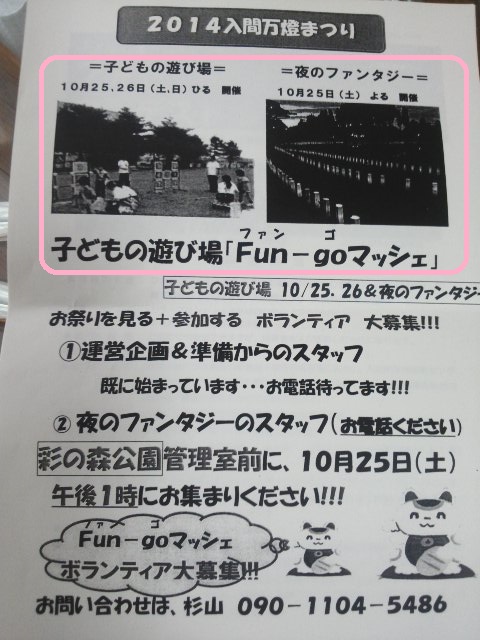 2014入間万燈まつり
＝子どもの遊び場＝
10月25、26日（土、日）ひる 開催
＝夜のファンタジー＝
10月25日（土）よる 開催
ファン ゴ
子どもの遊び場「Fun－goマッシェ」
子どもの遊び場 10/25. 26＆夜のファンタジー
お祭りを見る＋参加する ボランティア 大募集!!!
①運営企画＆準備からのスタッフ
既に始まっています･･･お電話待ってます!!!
② 夜のファンタジーのスタッフ（お電話ください）
彩の森公園管理室前に、10月25日（土）
午後1時にお集まりください!!!
ファン ゴ
Fun－goマッシェ
ボランティア大募集!!!
お問い合わせは、杉山 090－1104－5486